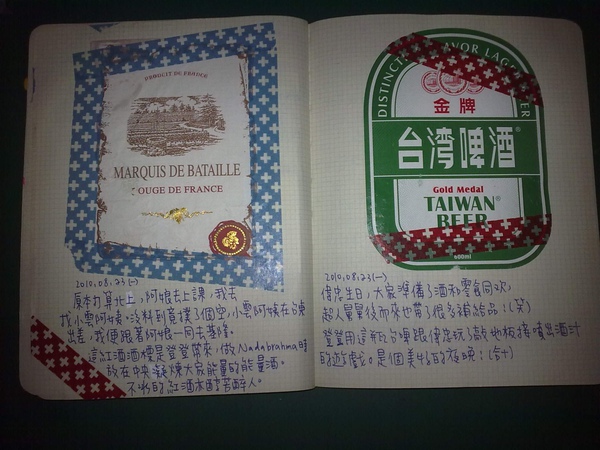 PRODUIT DE FRANCE
MARQUIS DE BATAILLE
OUGE DE FRANCE
2010.08.23(一)
原本打算北上,阿娘去上課,我去
找小雲阿姨。沒料到竟撲了個空,小雲阿姨在台東
出差,我便跟著阿娘一同去基隆。
這紅酒酒標是登登帶來,做Nadabrahma時
放在中央凝煉大家能量的能量酒。
不知的紅酒林醉苦醉人。
DISTINCT FLAVOR LAGER BEER
金牌
台湾啤酒®
Gold Medal
TAIWAN®
BEER
600ml
2010.08.23(一)
偉忠生日,大家準備了酒和零食同歡,
超人暈暈後而來也帶了很多補給品!(笑)
登登用這瓶台啤跟偉忠玩了敲地板接噴出酒汁
的遊戲。是個美妙的夜晚!(合十)